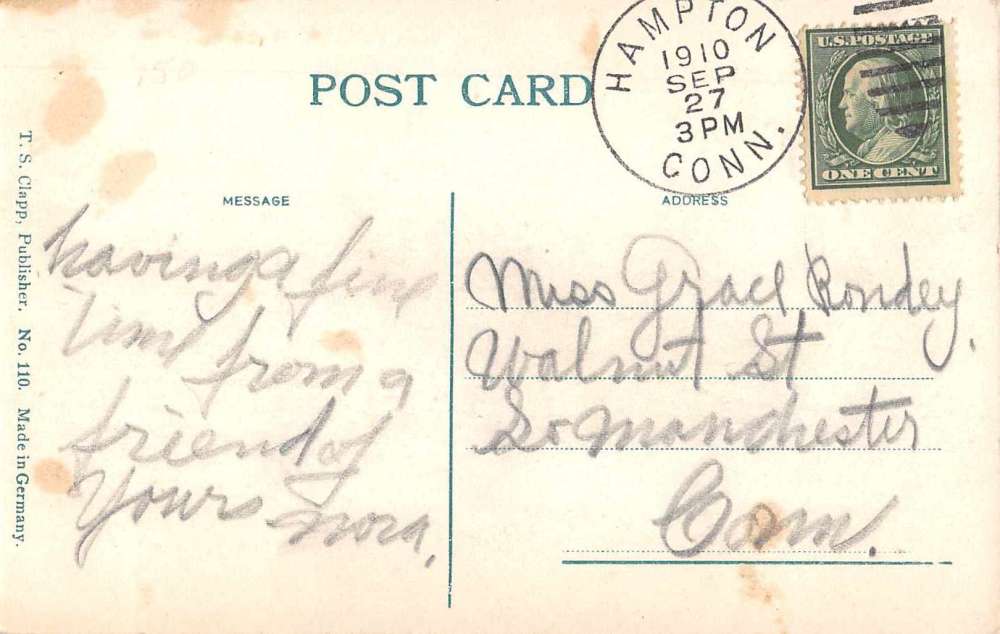 POST CARD
HAMPTON
1910
SEP
27
3 PM
CONN.
U.S. POSTAGE
ONE CENT
MESSAGE
having a fine
Time from a
friend of
Yours Nora,
ADDRESS
Miss Grace Rondey,
Walnut St
So Manchester
Conn.
T. S. Clapp, Publisher. No. 110. Made in Germany.